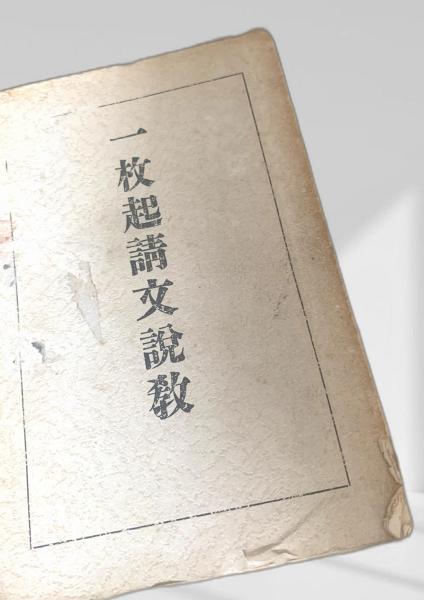 一枚起請文說教